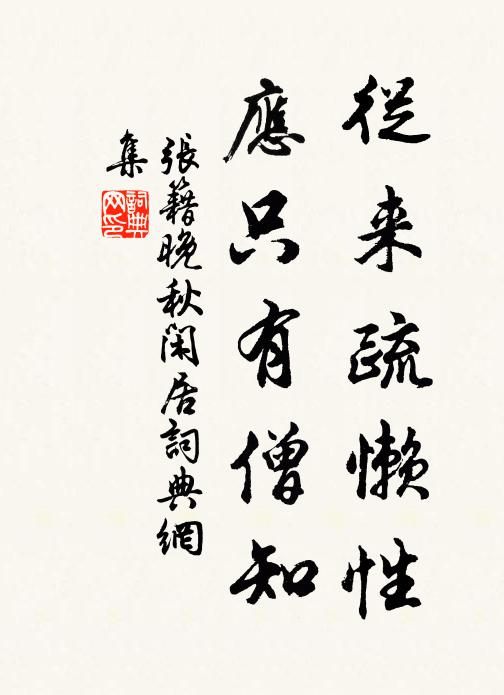 從来疏懶性
應只有僧知
張籍晚秋閑居詞典網
集
詞典
网印